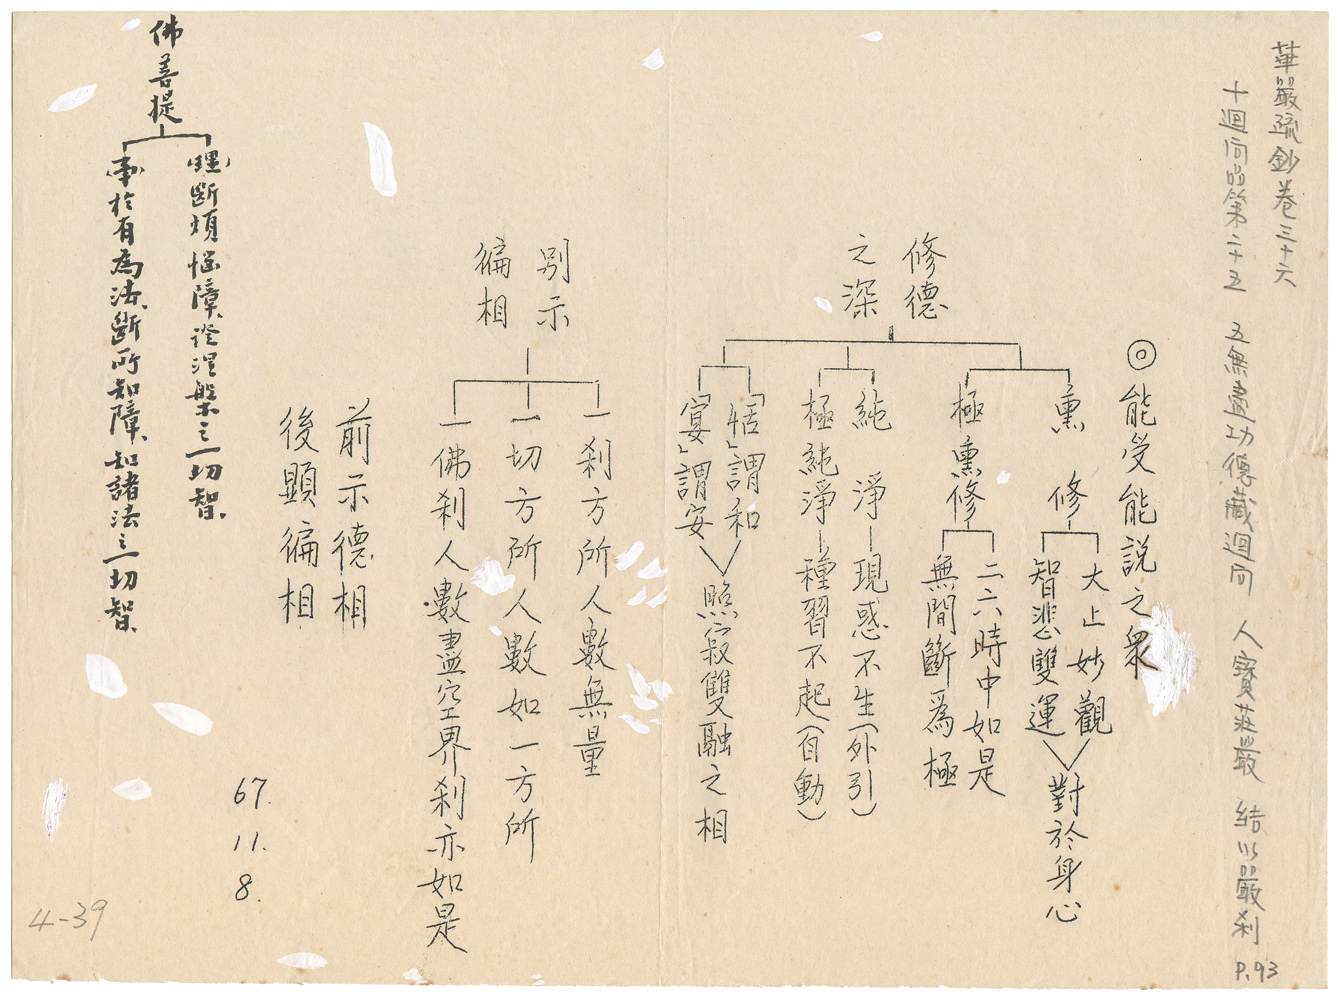 華嚴疏鈔卷三十六
十迴向品第二十五 五無盡功德藏迴向 人寶莊嚴 結以嚴刹 P.93
◎能受能說之衆
修德之深
熏修
大止妙觀
智悲雙運
對於身心
極熏修
二六時中如是
無間斷爲極
純淨—現惑不生(外引)
極純淨—種習不起(自動)
「恬」謂和
「宴」謂安
照寂雙融之相
別示徧相
一刹方所人數無量
一切方所人數如一方所
一佛刹人數盡空界刹亦如是
前示德相
後顯徧相
佛菩提
(理)斷煩惱障、證涅槃之一切智。
(事)於有為法、斷所知障、知諸法之一切智。
67.11.8.
4-39